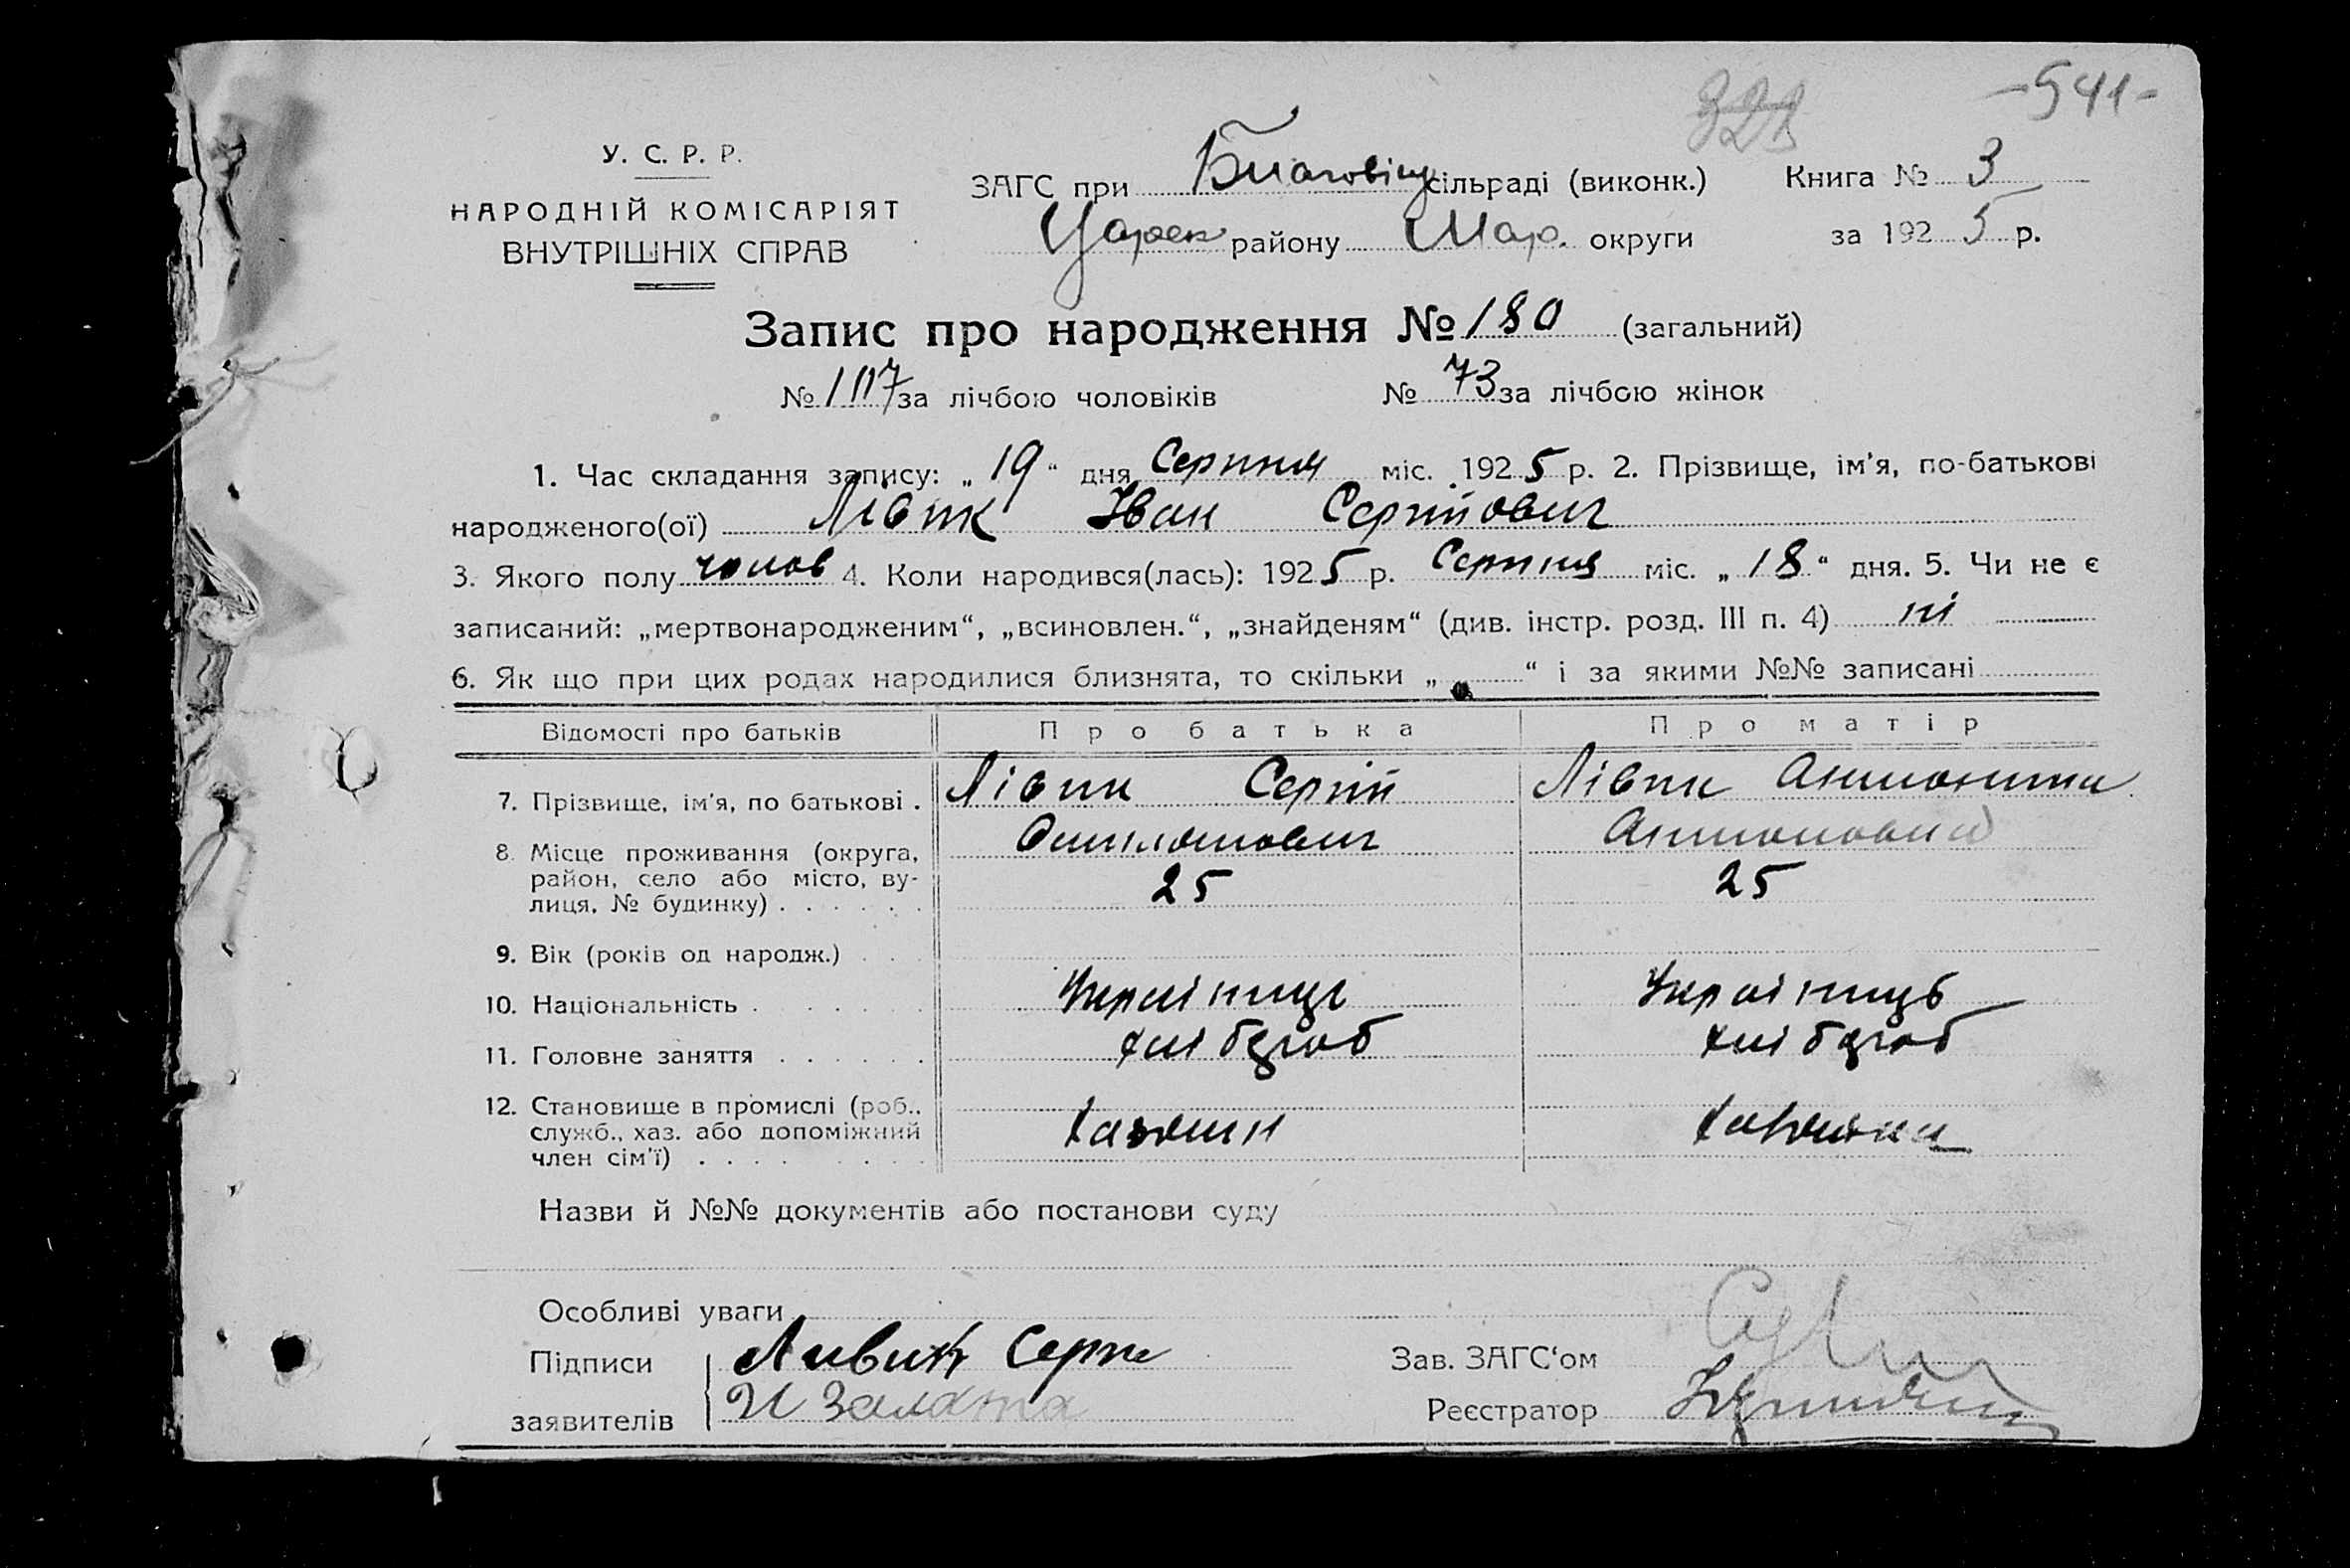 -541-
321
У. С. Р. Р.
НАРОДНІЙ КОМІСАРІЯТ
ВНУТРІШНІХ СПРАВ
ЗАГС при Благовіщ сільраді (виконк.) Книга № 3
Царек району Мар. округи за 1925 р.
Запис про народження № 180 (загальний)
№ 107 за лічбою чоловіків № 73 за лічбою жінок
1. Час складання запису: „19“ дня Серпня міс. 1925 р. 2. Прізвище, ім'я, по-батькові
народженого(ої) Лівик Іван Сергійович
3. Якого полу чолов 4. Коли народився(лась): 1925 р. Серпня міс. „18“ дня. 5. Чи не є
записаний: „мертвонародженим“, „всиновлен.“, „знайденям“ (див. інстр. розд. III п. 4) ні
6. Як що при цих родах народилися близнята, то скільки „ “ і за якими №№ записані
Відомості про батьків Про батька Про матір
7. Прізвище, ім'я, по батькові . Лівик Сергій Лівик Антонина
8. Місце проживання (округа, район, село або місто, вулиця, № будинку) . . . . . . Антоновна
25 25
9. Вік (років од народж.) . . .
10. Національність . . . . . . Українець Українець
11. Головне заняття . . . . . . хлібороб хлібороб
12. Становище в промислі (роб., служб., хаз. або допоміжний член сім'ї) . . . . . . . . Хазяин Хазяика
Назви й №№ документів або постанови суду
Особливі уваги
Підписи Ливик Серги Зав. ЗАГС'ом
заявителів И Залата Реєстратор